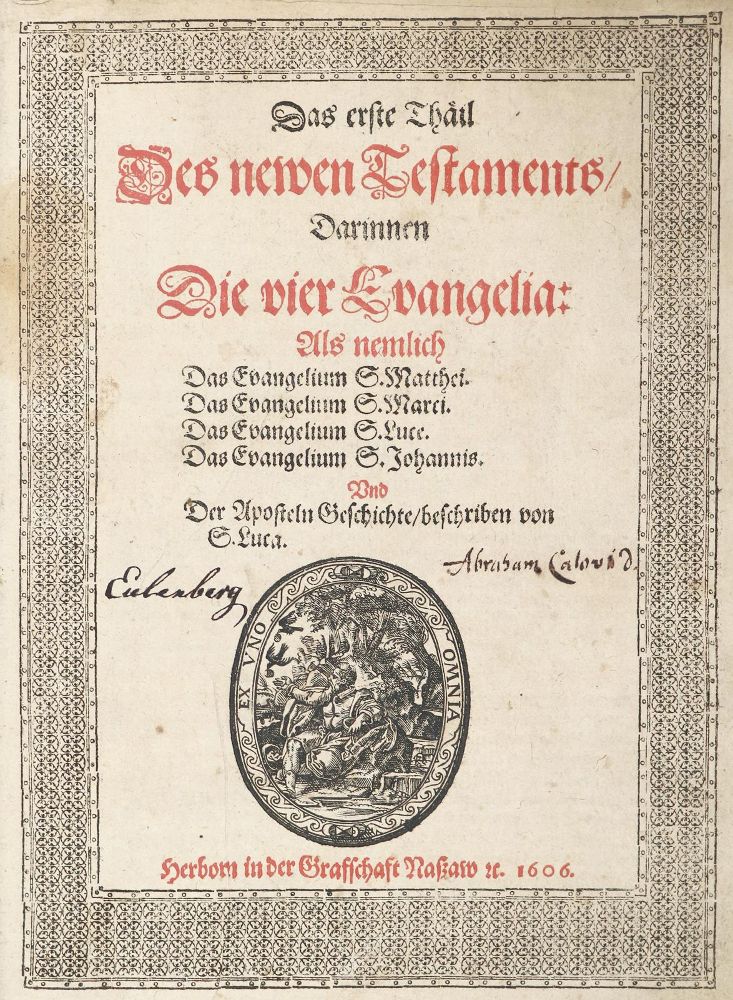 Das erste Thäil
Des newen Testaments/
Darinnen
Die vier Evangelia:
Als nemlich
Das Evangelium S. Matthei.
Das Evangelium S. Marci.
Das Evangelium S. Luce.
Das Evangelium S. Johannis.
Vnd
Der Aposteln Geschichte/beschriben von
S. Luca.
Abraham Calov D.
Eulenberg
EX VNO OMNIA
Herborn in der Grafschaft Naßaw ꝛc. 1606.